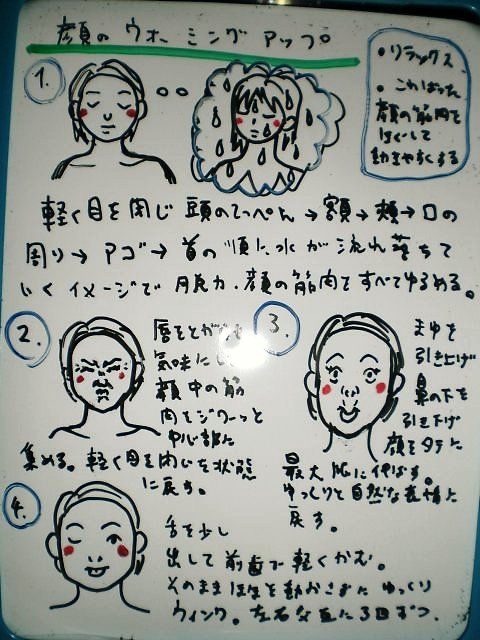 顔のウォーミングアップ
・リラックス
・こわばった
顔の筋肉を
ほぐして
動きやすくする
1.
軽く目を閉じ 頭のてっぺん→額→頬→口の
周り→アゴ→首の順に水が流れ落ちて
いくイメージで脱力.顔の筋肉をすべてゆるめる。
2.
唇をとがらせ
気味にし
顔中の筋
肉をジワーっと
中心部に
集める。軽く目を閉じた状態
に戻す。
3.
まゆを
引き上げ
鼻の下を
引き下げ
顔をタテに
最大限に伸ばす。
ゆっくりと自然な表情に
戻す。
4.
舌を少し
出して前歯で軽くかむ。
そのままほほを動かさずにゆっくり
ウィンク。左右交互に3回ずつ.